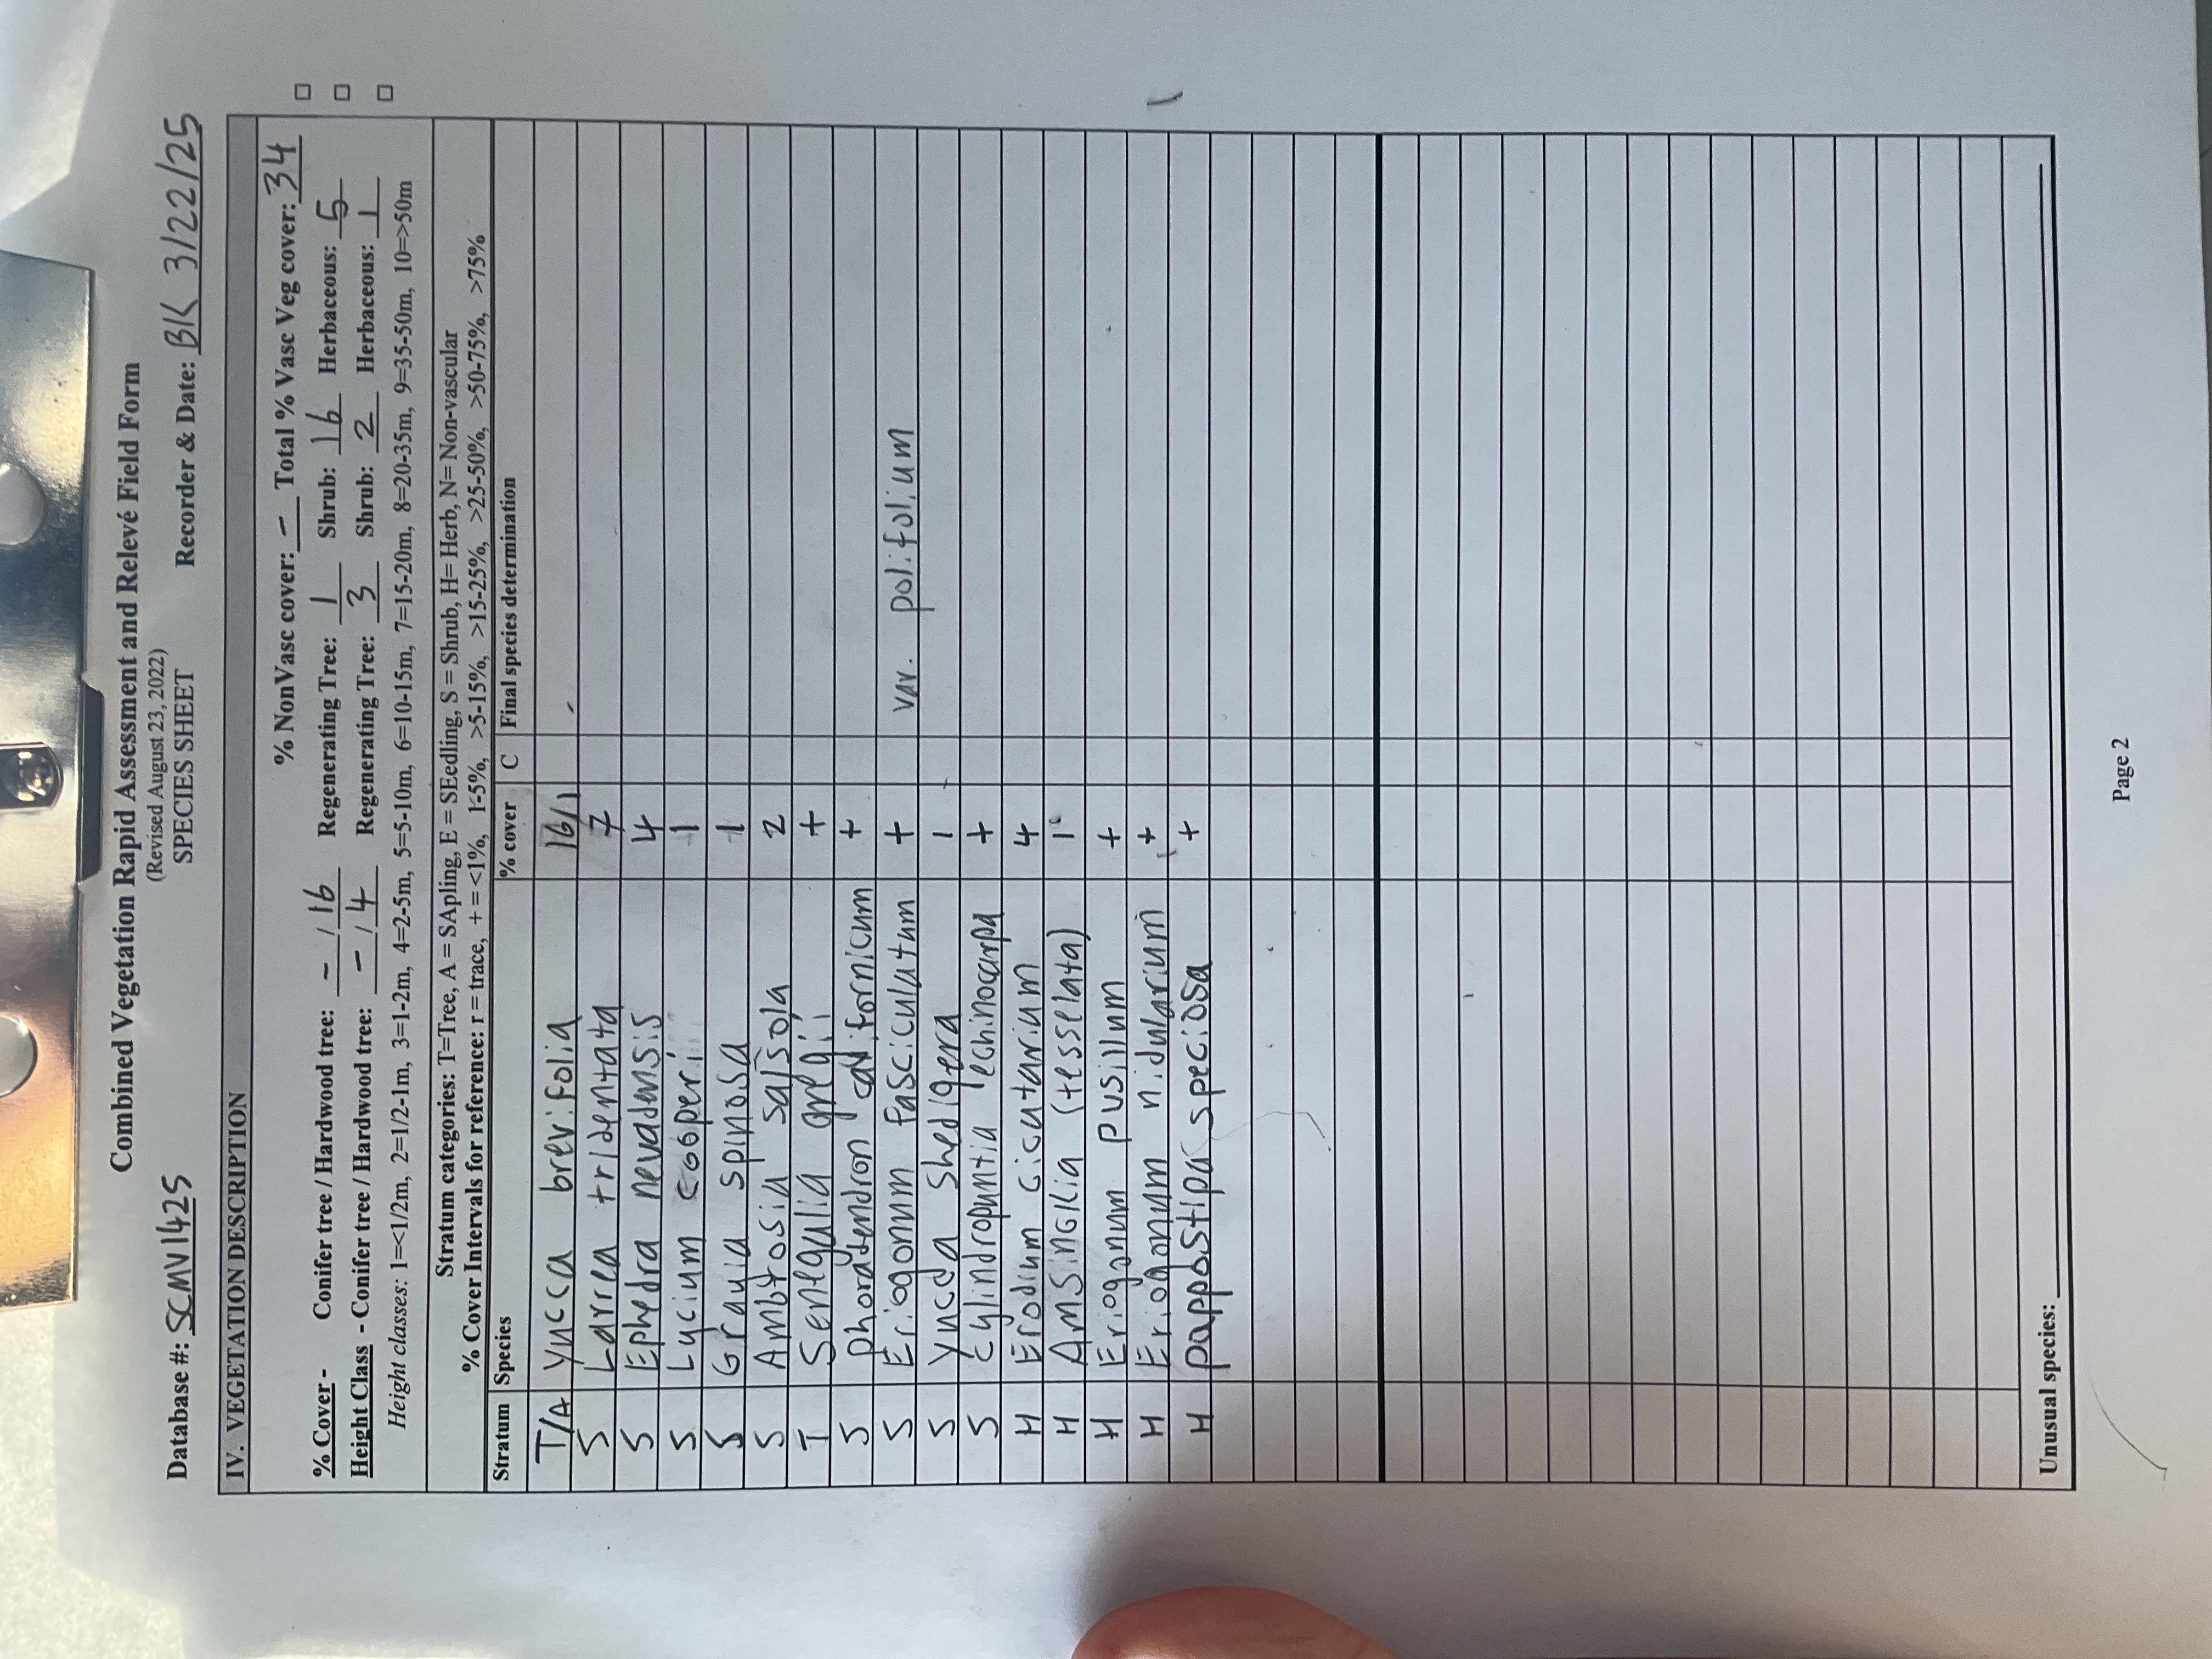 Combined Vegetation Rapid Assessment and Relevé Field Form
(Revised August 23, 2022)
Database #: SCMV1425 SPECIES SHEET Recorder & Date: BK 3/22/25
IV. VEGETATION DESCRIPTION
% NonVasc cover: - Total % Vasc Veg cover: 34
% Cover - Conifer tree / Hardwood tree: - / 16 Regenerating Tree: 1 Shrub: 16 Herbaceous: 5
Height Class - Conifer tree / Hardwood tree: - / 4 Regenerating Tree: 3 Shrub: 2 Herbaceous: 1
Height classes: 1=<1/2m, 2=1/2-1m, 3=1-2m, 4=2-5m, 5=5-10m, 6=10-15m, 7=15-20m, 8=20-35m, 9=35-50m, 10=>50m
Stratum categories: T=Tree, A = SApling, E = SEedling, S = Shrub, H= Herb, N= Non-vascular
% Cover Intervals for reference: r = trace, + = <1%, 1-5%, >5-15%, >15-25%, >25-50%, >50-75%, >75%
Stratum Species % cover C Final species determination
T/A Yucca brevifolia 16/1
S Larrea tridentata 7
S Ephedra nevadensis 4
S Lycium cooperi 1
S Grayia spinosa 1
S Ambrosia salsola 2
T Senegalia gregii +
S phoradendron californicum +
S Eriogonum fasciculatum + var. polifolium
S Yucca shedigera 1
S Cylindropuntia echinocarpa +
H Erodium cicutarium 4
H Amsinckia (tesselata) 1
H Eriogonum pusillum +
H Eriogonum nidularium +
H pappostipa speciosa +
Unusual species:
Page 2